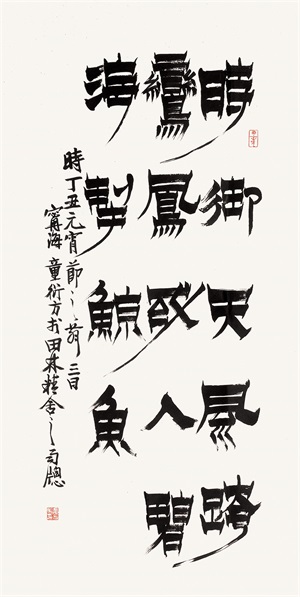 時御天風跨
鸞鳳入碧
海掣鯨魚
時丁丑元宵節之前三日
甯海童衍方於田林藝舍之南牕